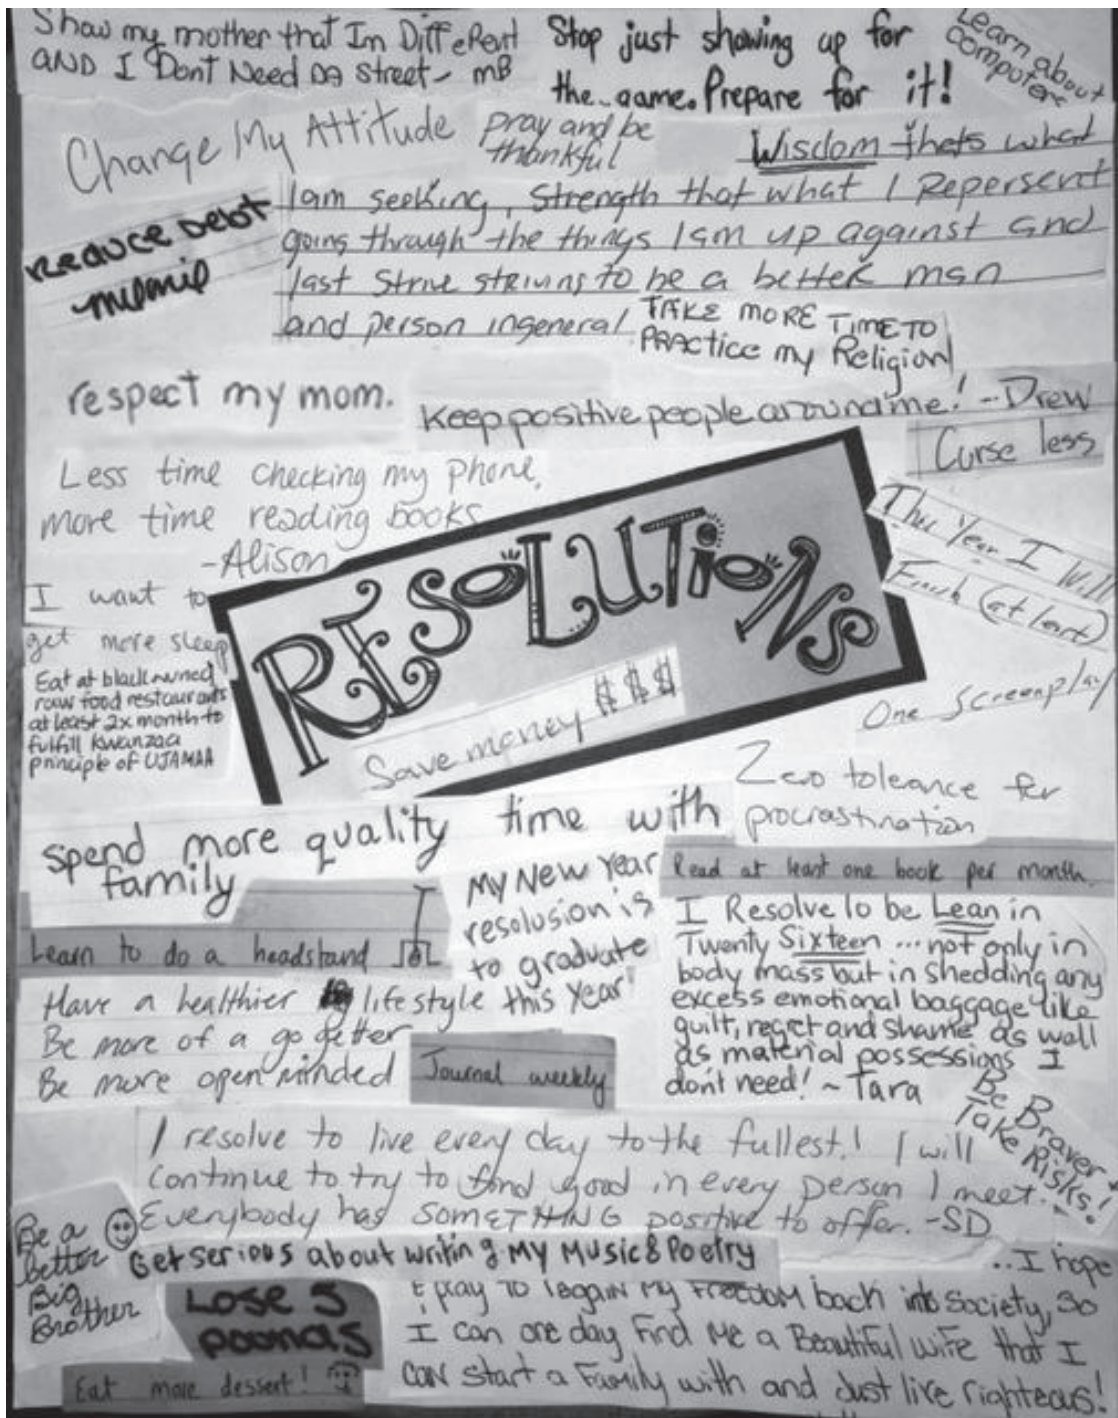 Show my mother that Im Different
AND I Dont Need Da Street - mB
Stop just showing up for
the game. Prepare for it!
Learn about
computers
Change My Attitude
pray and be
thankful
Wisdom thats what
I am seeking, Strength that what I Repersent
going through the things I am up against and
last Strive striving to be a better man
and person ingeneral
Reduce Debt
TAKE MORE TIME TO
PRActice my Religion
respect my mom.
Keep positive people around me! - Drew
Curse less
Less time checking my phone,
more time reading books
-Alison
This Year I Will
Finish (at least)
One Screenplay
I want to
get more sleep
Eat at black owned
raw food restaurants
at least 2x month to
fulfill Kwanzaa
principle of UJAMAA
RESOLUTIONS
Save money $$$
Zero tolerance for
procrastination
spend more quality time with
family
Read at least one book per month.
My New Year
resolusion is
to graduate
this Year!
Learn to do a headstand
I Resolve to be Lean in
Twenty Sixteen ... not only in
body mass but in shedding any
excess emotional baggage like
guilt, regret and shame as well
as material possessions I
don't need! ~ Tara
Have a healthier lifestyle
Be more of a go getter
Be more open minded
Journal weekly
Be Braver +
Take Risks!
I resolve to live every day to the fullest! I will
continue to try to find good in every person I meet.
Everybody has SOMETHING positive to offer. -SD
Be a
better
Big
Brother
Get serious about writing My Music & Poetry
Lose 5
pounds
Eat more dessert!
... I hope
& pray to regain my Freedom back into society, so
I can one day Find Me a Beautiful Wife that I
can start a Family with and Just live righteous!